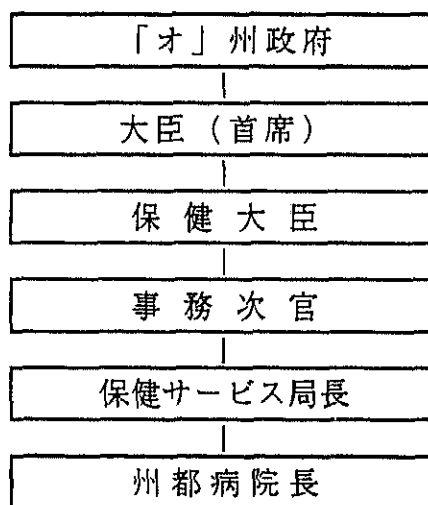 「オ」州政府
大臣（首席）
保健大臣
事務次官
保健サービス局長
州都病院長